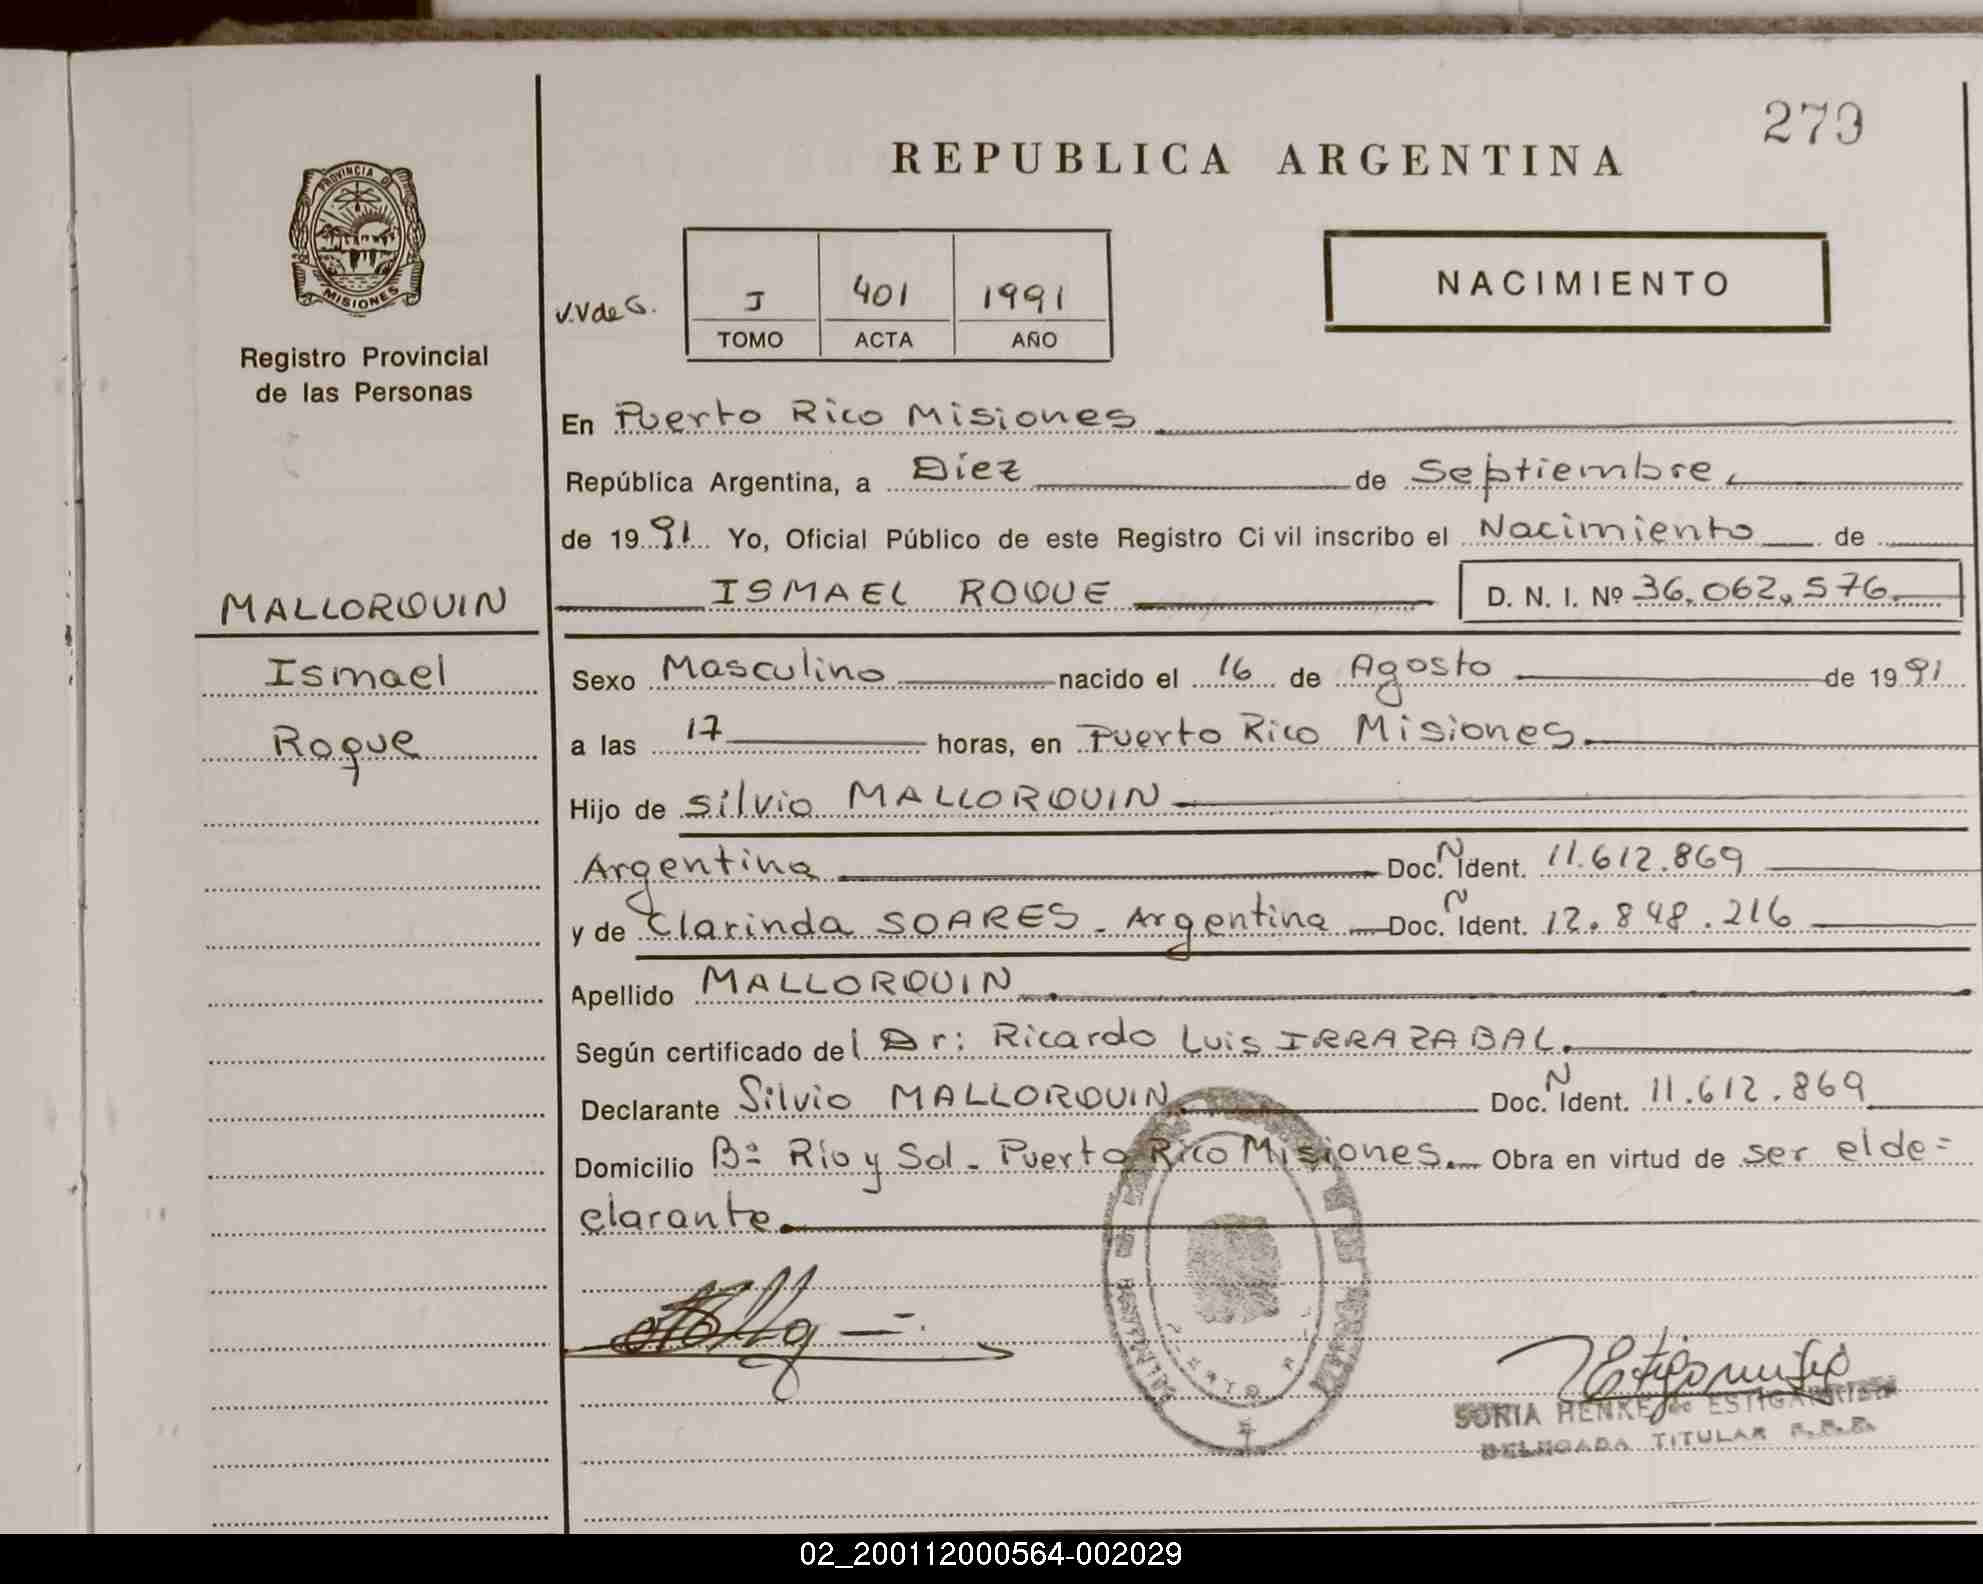 279
REPUBLICA ARGENTINA
PROVINCIA DE
MISIONES
Registro Provincial
de las Personas
V.V de G.
J 401 1991
TOMO ACTA AÑO
NACIMIENTO
En Puerto Rico Misiones
República Argentina, a Diez de Septiembre
de 1991 Yo, Oficial Público de este Registro Ci vil inscribo el Nacimiento de
MALLORQUIN
ISMAEL ROQUE D. N. I. Nº 36.062.576
Ismael
Sexo Masculino nacido el 16 de Agosto de 1991
Roque
a las 17 horas, en Puerto Rico Misiones
Hijo de Silvio MALLORQUIN
Argentina Doc. N Ident. 11.612.869
y de Clarinda SOARES - Argentina Doc. N Ident. 12.848.216
Apellido MALLORQUIN
Según certificado del Dr: Ricardo Luis IRRAZABAL.
Declarante Silvio MALLORQUIN Doc. N Ident. 11.612.869
Domicilio Bº Río y Sol - Puerto Rico Misiones. Obra en virtud de ser el de=
clarante.
SONIA HENKE de ESTIGARRIBIA
DELEGADA TITULAR
02_200112000564-002029